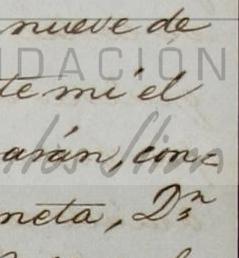 nueve de
FUNDACIÓN
te mi el
arán, con=
neta, Dn